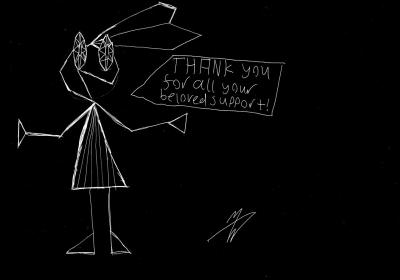 THANK you
for all your
beloved support!